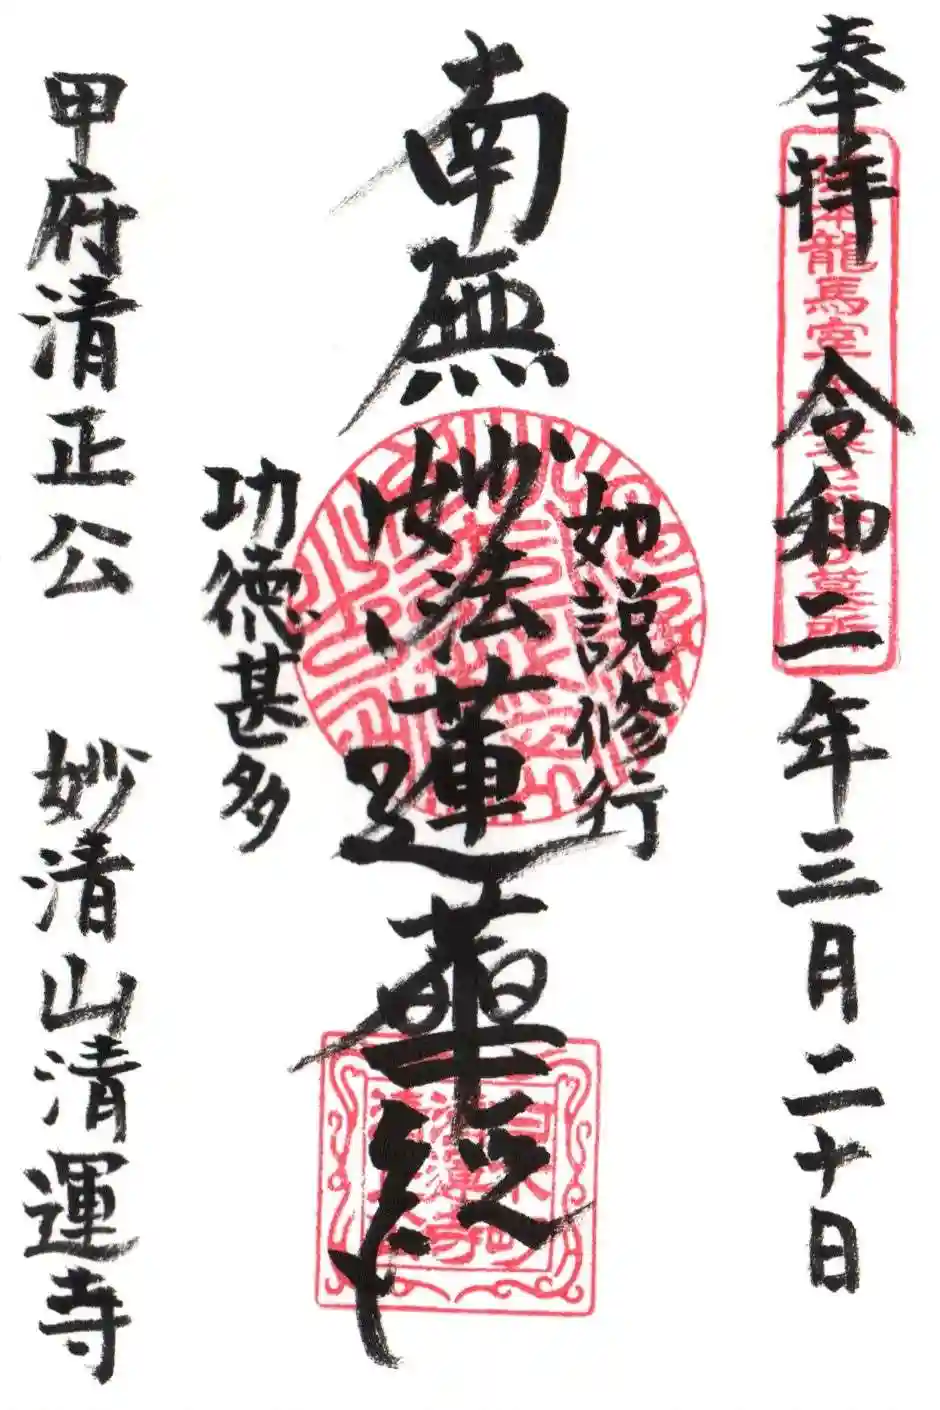 奉拝 令和二年三月二十日
如説修行
南無妙法蓮華経
功徳甚多
甲府清正公 妙清山清運寺
龍馬室